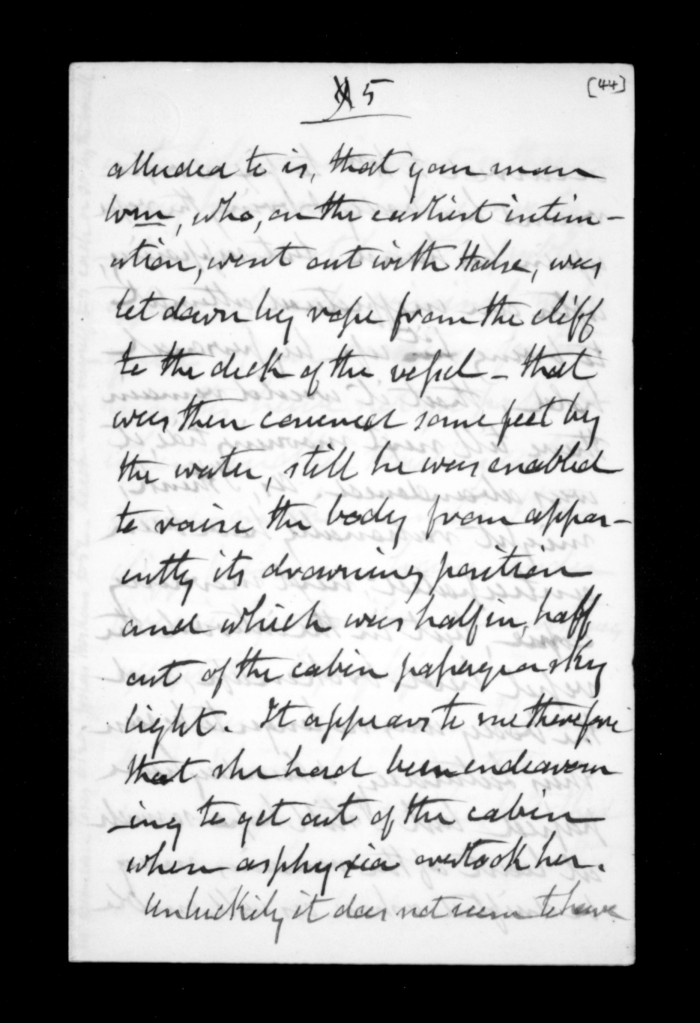 5 [44]
alluded to is, that your man
Wm, who, on the earliest intim-
ation, went out with Halse, was
let down by rope from the cliff
to the deck of the vessel - that
was then covered some feet by
the water, still he was enabled
to raise the body from appar-
ently its drowning position
and which was half in, half
out of the cabin sky
light. It appears to me therefore
that she had been endeavour
-ing to get out of the cabin
when asphyxia overtook her.
Unluckily it does not seem to have